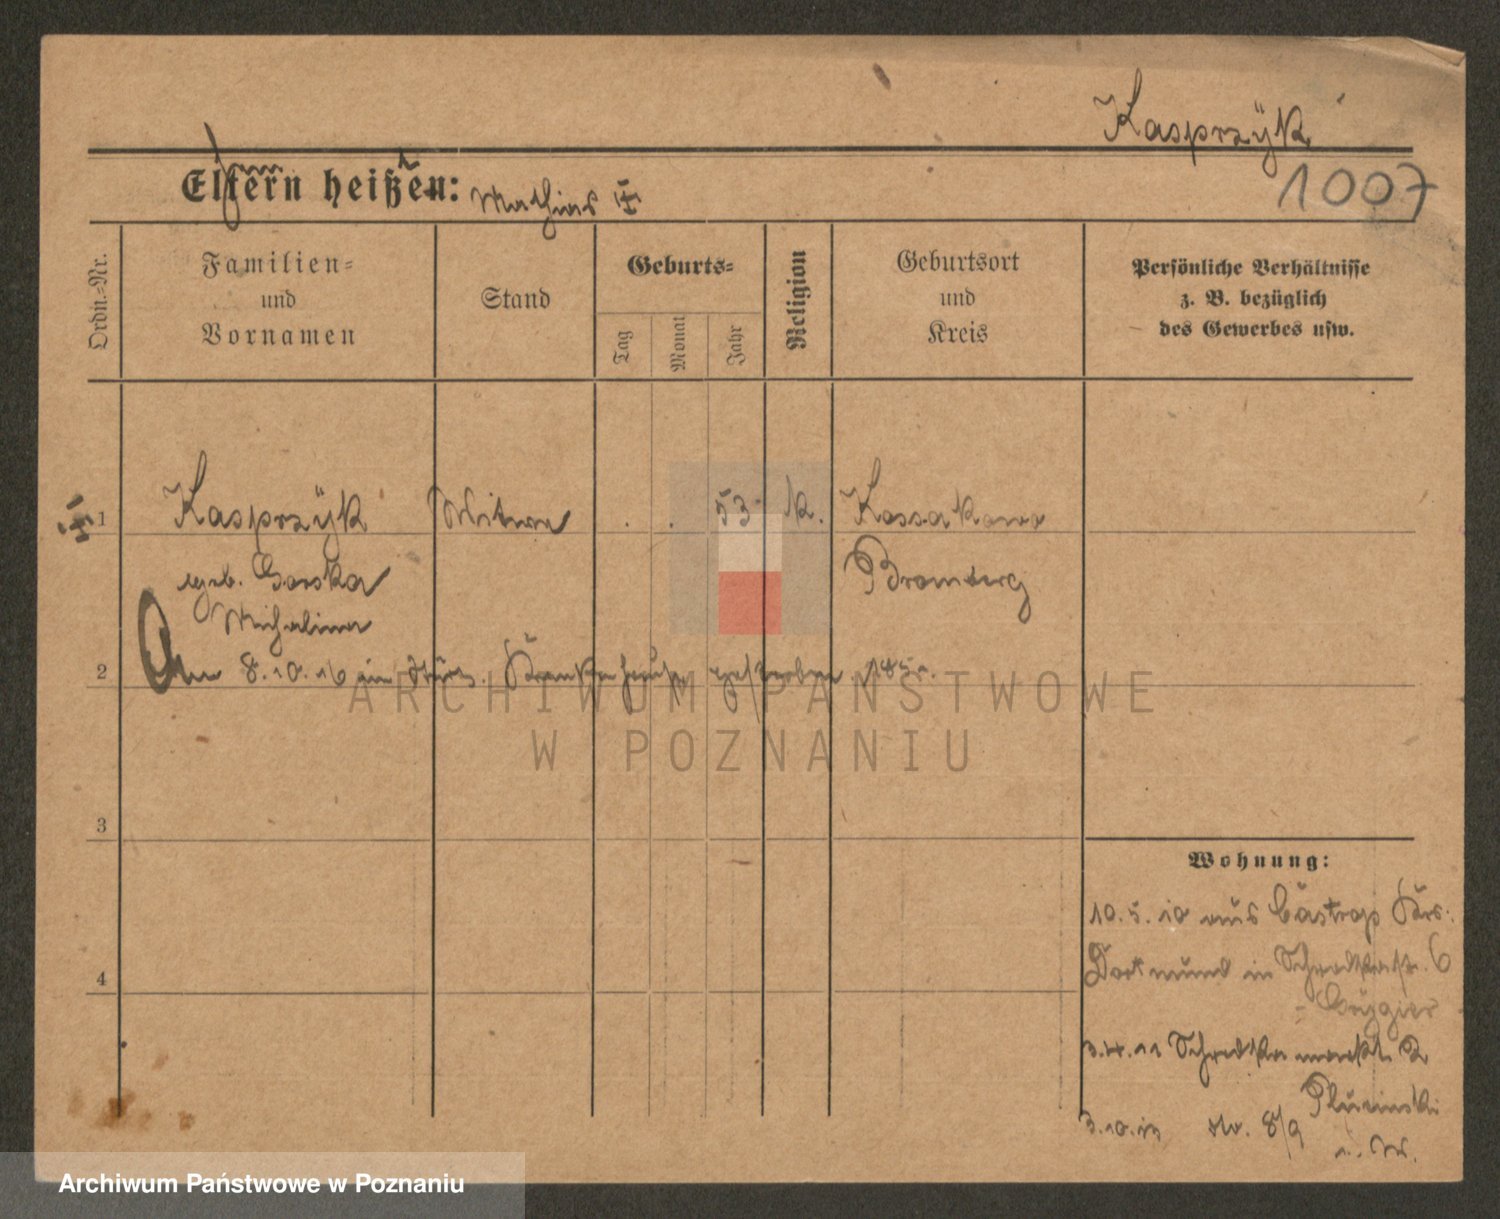 Kasprzÿk
1007
Eltern heißen: Mathias
Ordn.-Nr.
Familien-
und
Vornamen
Stand
Geburts-
Tag
Monat
Jahr
Religion
Geburtsort
und
Kreis
Persönliche Verhältnisse
z. B. bezüglich
des Gewerbes usw.
1 Kasprzÿk Witwe . . 53 k. Kossakowo
geb. Gorska Bromberg
Michalina
2 8.10.16 im Krankenhause gestorben
3
4
Wohnung:
10.5.10 aus Castrop Krs.
Dortmund in 6
3.4.11 Schrodkamarkt 2
3.10.13 do. 8/9
ARCHIWUM PAŃSTWOWE
W POZNANIU
Archiwum Państwowe w Poznaniu